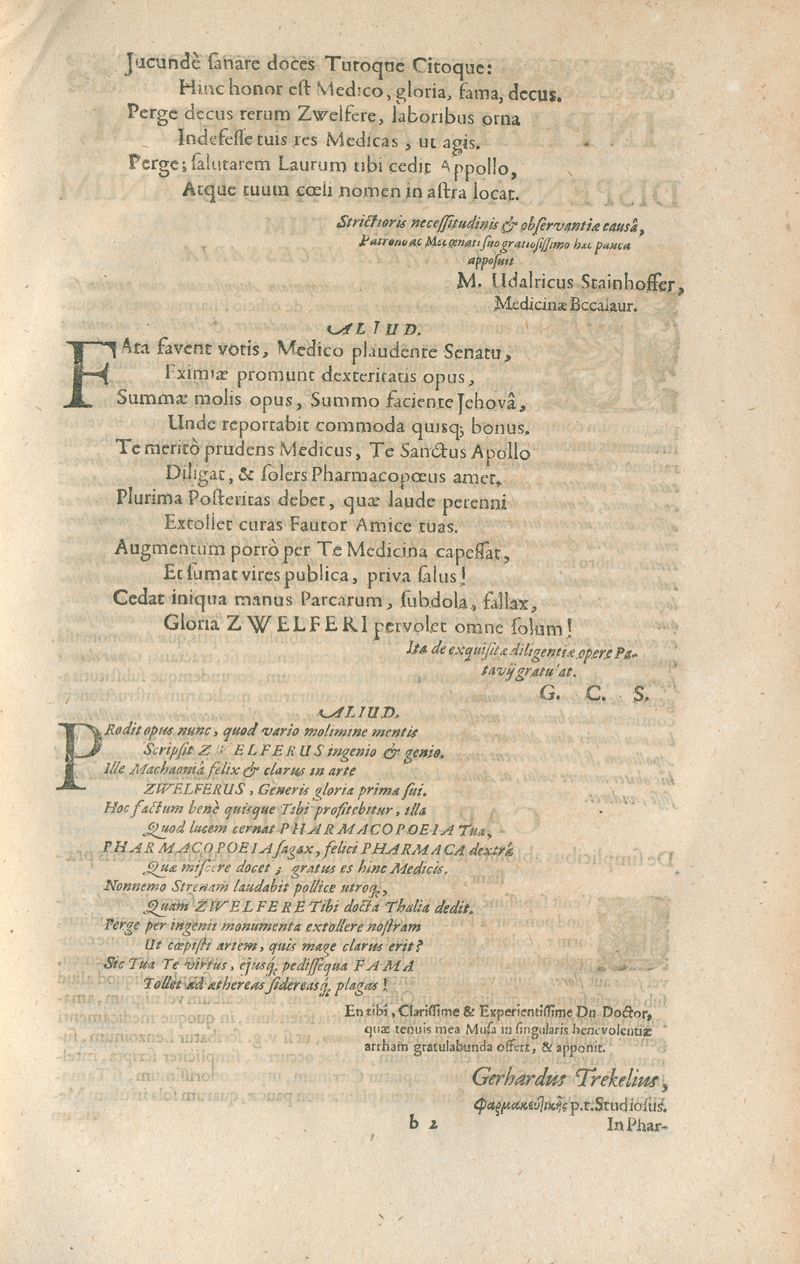 Jucundè ſanare doces Tutoque Citoque:
Hinc honor eſt Medico, gloria, fama, decus.
Perge decus rerum Zwelfere, laboribus orna
Indefeſſe tuis res Medicas, ut agis.
Perge; ſalutarem Laurum tibi cedit Appollo,
Atque tuum cœli nomen in aſtra locat.
Strictioris neceſſitudinis & obſervantiæ causâ,
Patrono ac Mecœnati ſuo gratioſiſſimo hæc pauca
appoſuit
M. Udalricus Stainhoffer,
Medicinæ Bccalaur.
ALIUD.
FAta favent votis, Medico plaudente Senatu,
Eximiæ promunt dexteritatis opus,
Summæ molis opus, Summo faciente Jehovâ,
Unde reportabit commoda quisq; bonus.
Te meritò prudens Medicus, Te Sanctus Apollo
Diligat, & ſolers Pharmacopœus amet.
Plurima Poſteritas debet, quæ laude perenni
Extollet curas Fautor Amice tuas.
Augmentum porrò per Te Medicina capeſſat,
Et ſumat vires publica, priva ſalus!
Cedat iniqua manus Parcarum, ſubdola, fallax,
Gloria ZWELFERI pervolet omne ſolum!
Ita de exquiſitæ diligentiæ opere Pa-
tavij gratu'at.
G. C. S.
ALIUD.
PRodit opus nunc, quod vario molimine mentis
Scripſit ZWELFERUS ingenio & genio.
Ille Machaoniâ felix & clarus in arte
ZWELFERUS, Generis gloria prima ſui.
Hoc factum benè quisque Tibi profitebitur, illa
Quod lucem cernat PHARMACOPOEIA Tua,
PHARMACOPOEIA ſagax, felici PHARMACA dextrâ
Quæ miſcere docet; gratus es hinc Medicis.
Nonnemo Strenam laudabit pollice utroq;,
Quam ZWELFERE Tibi docta Thalia dedit.
Perge per ingenii monumenta extollere noſtram
Ut cœpiſti artem, quis mage clarus erit?
Sic Tua Te virtus, ejusq; pediſſequa FAMA
Tollet ad æthereas ſidereasq; plagas!
En tibi, Clariſſime & Experientiſſime Dn Doctor,
quæ tenuis mea Muſa in ſingularis benevolentiæ
arrham gratulabunda offert, & apponit.
Gerhardus Trekelius,
Φαρμακευτικῆς p.t. Studioſus.
b 2
In Phar-